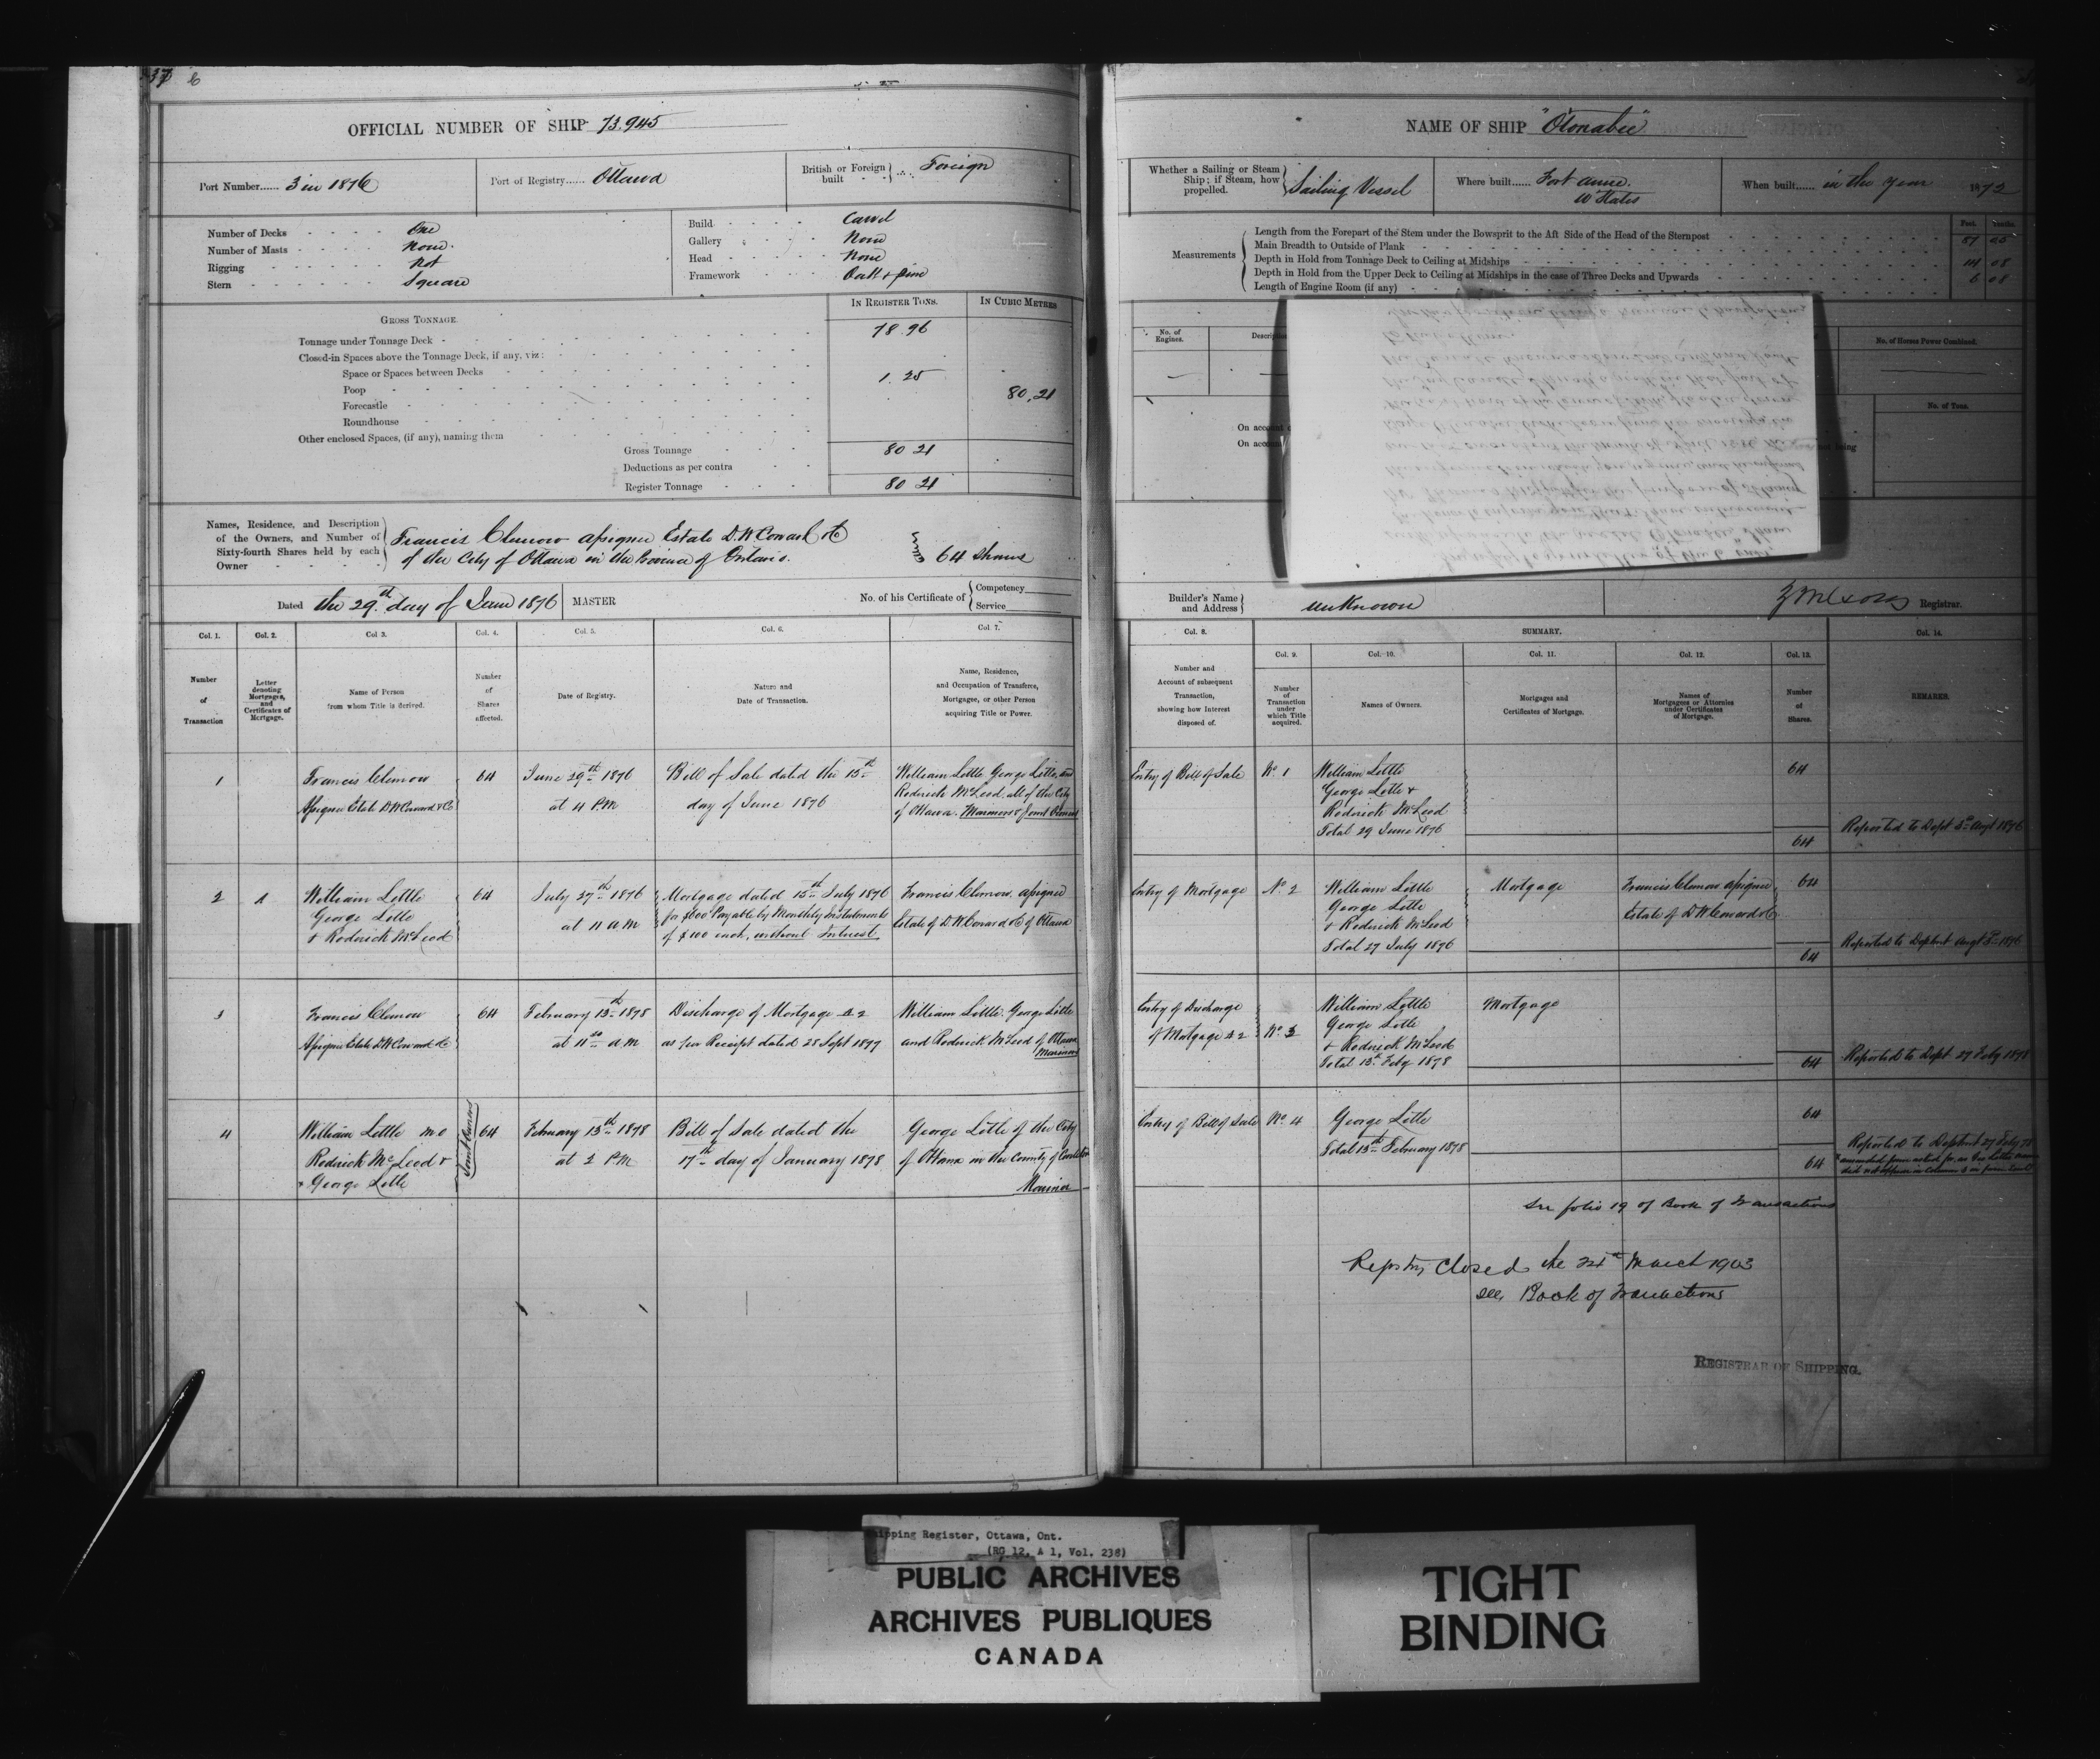 37 6
OFFICIAL NUMBER OF SHIP 73.945
Port Number...... 3 in 1876
Port of Registry...... Ottawa
British or Foreign built .... Foreign
Number of Decks One
Number of Masts None.
Rigging Not
Stern Square
Build Carvel
Gallery None
Head None
Framework Oak & pine
IN REGISTER TONS.
IN CUBIC METRES
GROSS TONNAGE.
Tonnage under Tonnage Deck 78.96
Closed-in Spaces above the Tonnage Deck, if any, viz:
Space or Spaces between Decks 1.25
Poop 80.21
Forecastle
Roundhouse
Other enclosed Spaces, (if any), naming them
Gross Tonnage 80 21
Deductions as per contra
Register Tonnage 80 21
Names, Residence, and Description of the Owners, and Number of Sixty-fourth Shares held by each Owner
Francis Clemow Assignee Estate D. W. Coward & Co
of the City of Ottawa in the Province of Ontario.
64 Shares
Dated the 29th day of June 1876
MASTER
No. of his Certificate of
Competency
Service
Col. 1.
Col. 2.
Col 3.
Col. 4.
Col. 5.
Col. 6.
Col. 7.
Number of Transaction
Letter denoting Mortgages, and Certificates of Mortgage.
Name of Person from whom Title is derived.
Number of Shares affected.
Date of Registry.
Nature and Date of Transaction.
Name, Residence, and Occupation of Transferee, Mortgagee, or other Person acquiring Title or Power.
1
Francis Clemow
Assignee Estate D W Coward & Co
64
June 29th 1876
at 4 P.M
Bill of Sale dated the 15th
day of June 1876
William Little George Little, and
Roderick McLeod, all of the City
of Ottawa. Mariners & Joint Owners
2
A
William Little
George Little
& Roderick McLeod
64
July 27th 1876
at 11 a.m
Mortgage dated 15th July 1876
for $600 Payable by Monthly Instalments
of $100 each, without Interest
Francis Clemow, assignee
Estate of D. W Coward & Co of Ottawa
3
Francis Clemow
Assignee Estate D W Coward & Co
64
February 13th 1878
at 11 a.m
Discharge of Mortgage A 2
as per Receipt dated 28 Sept 1877
William Little. George Little
and Roderick McLeod of Ottawa
Mariners
4
William Little
Roderick McLeod &
George Little
Joint Owners
64
February 13th 1878
at 2 P.M
Bill of Sale dated the
17th day of January 1878
George Little of the City
of Ottawa in the County of Carleton
Mariner
NAME OF SHIP "Otonabee"
Whether a Sailing or Steam Ship; if Steam, how propelled.
Sailing Vessel
Where built...... Fort Anne.
U States
When built...... in the year 1872
Measurements
Feet. Tenths.
Length from the Forepart of the Stem under the Bowsprit to the Aft Side of the Head of the Sternpost
Main Breadth to Outside of Plank 14 08
Depth in Hold from Tonnage Deck to Ceiling at Midships 6 08
Depth in Hold from the Upper Deck to Ceiling at Midships in the case of Three Decks and Upwards
Length of Engine Room (if any)
No. of Engines.
No. of Horses Power Combined.
No. of Tons.
On account
On account
being
Builder's Name and Address unknown
Registrar.
Col. 8.
SUMMARY.
Col. 14.
Col. 9.
Col. 10.
Col. 11.
Col. 12.
Col. 13.
Number and Account of subsequent Transaction, showing how Interest disposed of.
Number of Transaction under which Title acquired.
Names of Owners.
Mortgages and Certificates of Mortgage.
Names of Mortgagees or Attornies under Certificates of Mortgage.
Number of Shares.
REMARKS.
Entry of Bill of Sale
No 1
William Little
George Little &
Roderick McLeod
Total 29 June 1876
64
64
Reported to Dept 3d Augt 1876
Entry of Mortgage
No 2
William Little
George Little
& Roderick McLeod
Total 27 July 1876
Mortgage
Francis Clemow assignee
Estate of D W Coward & Co
64
64
Reported to Deptmt Augt 3d 1876
Entry of Discharge
of Mortgage A 2
No 3
William Little
George Little
& Roderick McLeod
Total 13th Feby 1878
Mortgage
64
Reported to Dept 27 Feby 1878
Entry of Bill of Sale
No. 4
George Little
Total 13th February 1878
64
64
Reported to Deptmt 27 Feby 78
See folio 19 of Book of Transactions
Registry Closed the 24th March 1903
see Book of Transactions
REGISTRAR OF SHIPPING.
Shipping Register, Ottawa, Ont.
(RG 12, A 1, Vol. 238)
PUBLIC ARCHIVES
ARCHIVES PUBLIQUES
CANADA
TIGHT
BINDING